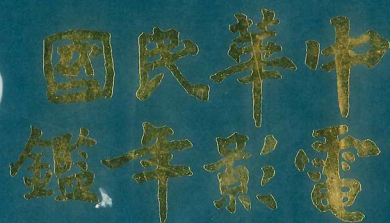 中華民國
電影年鑑